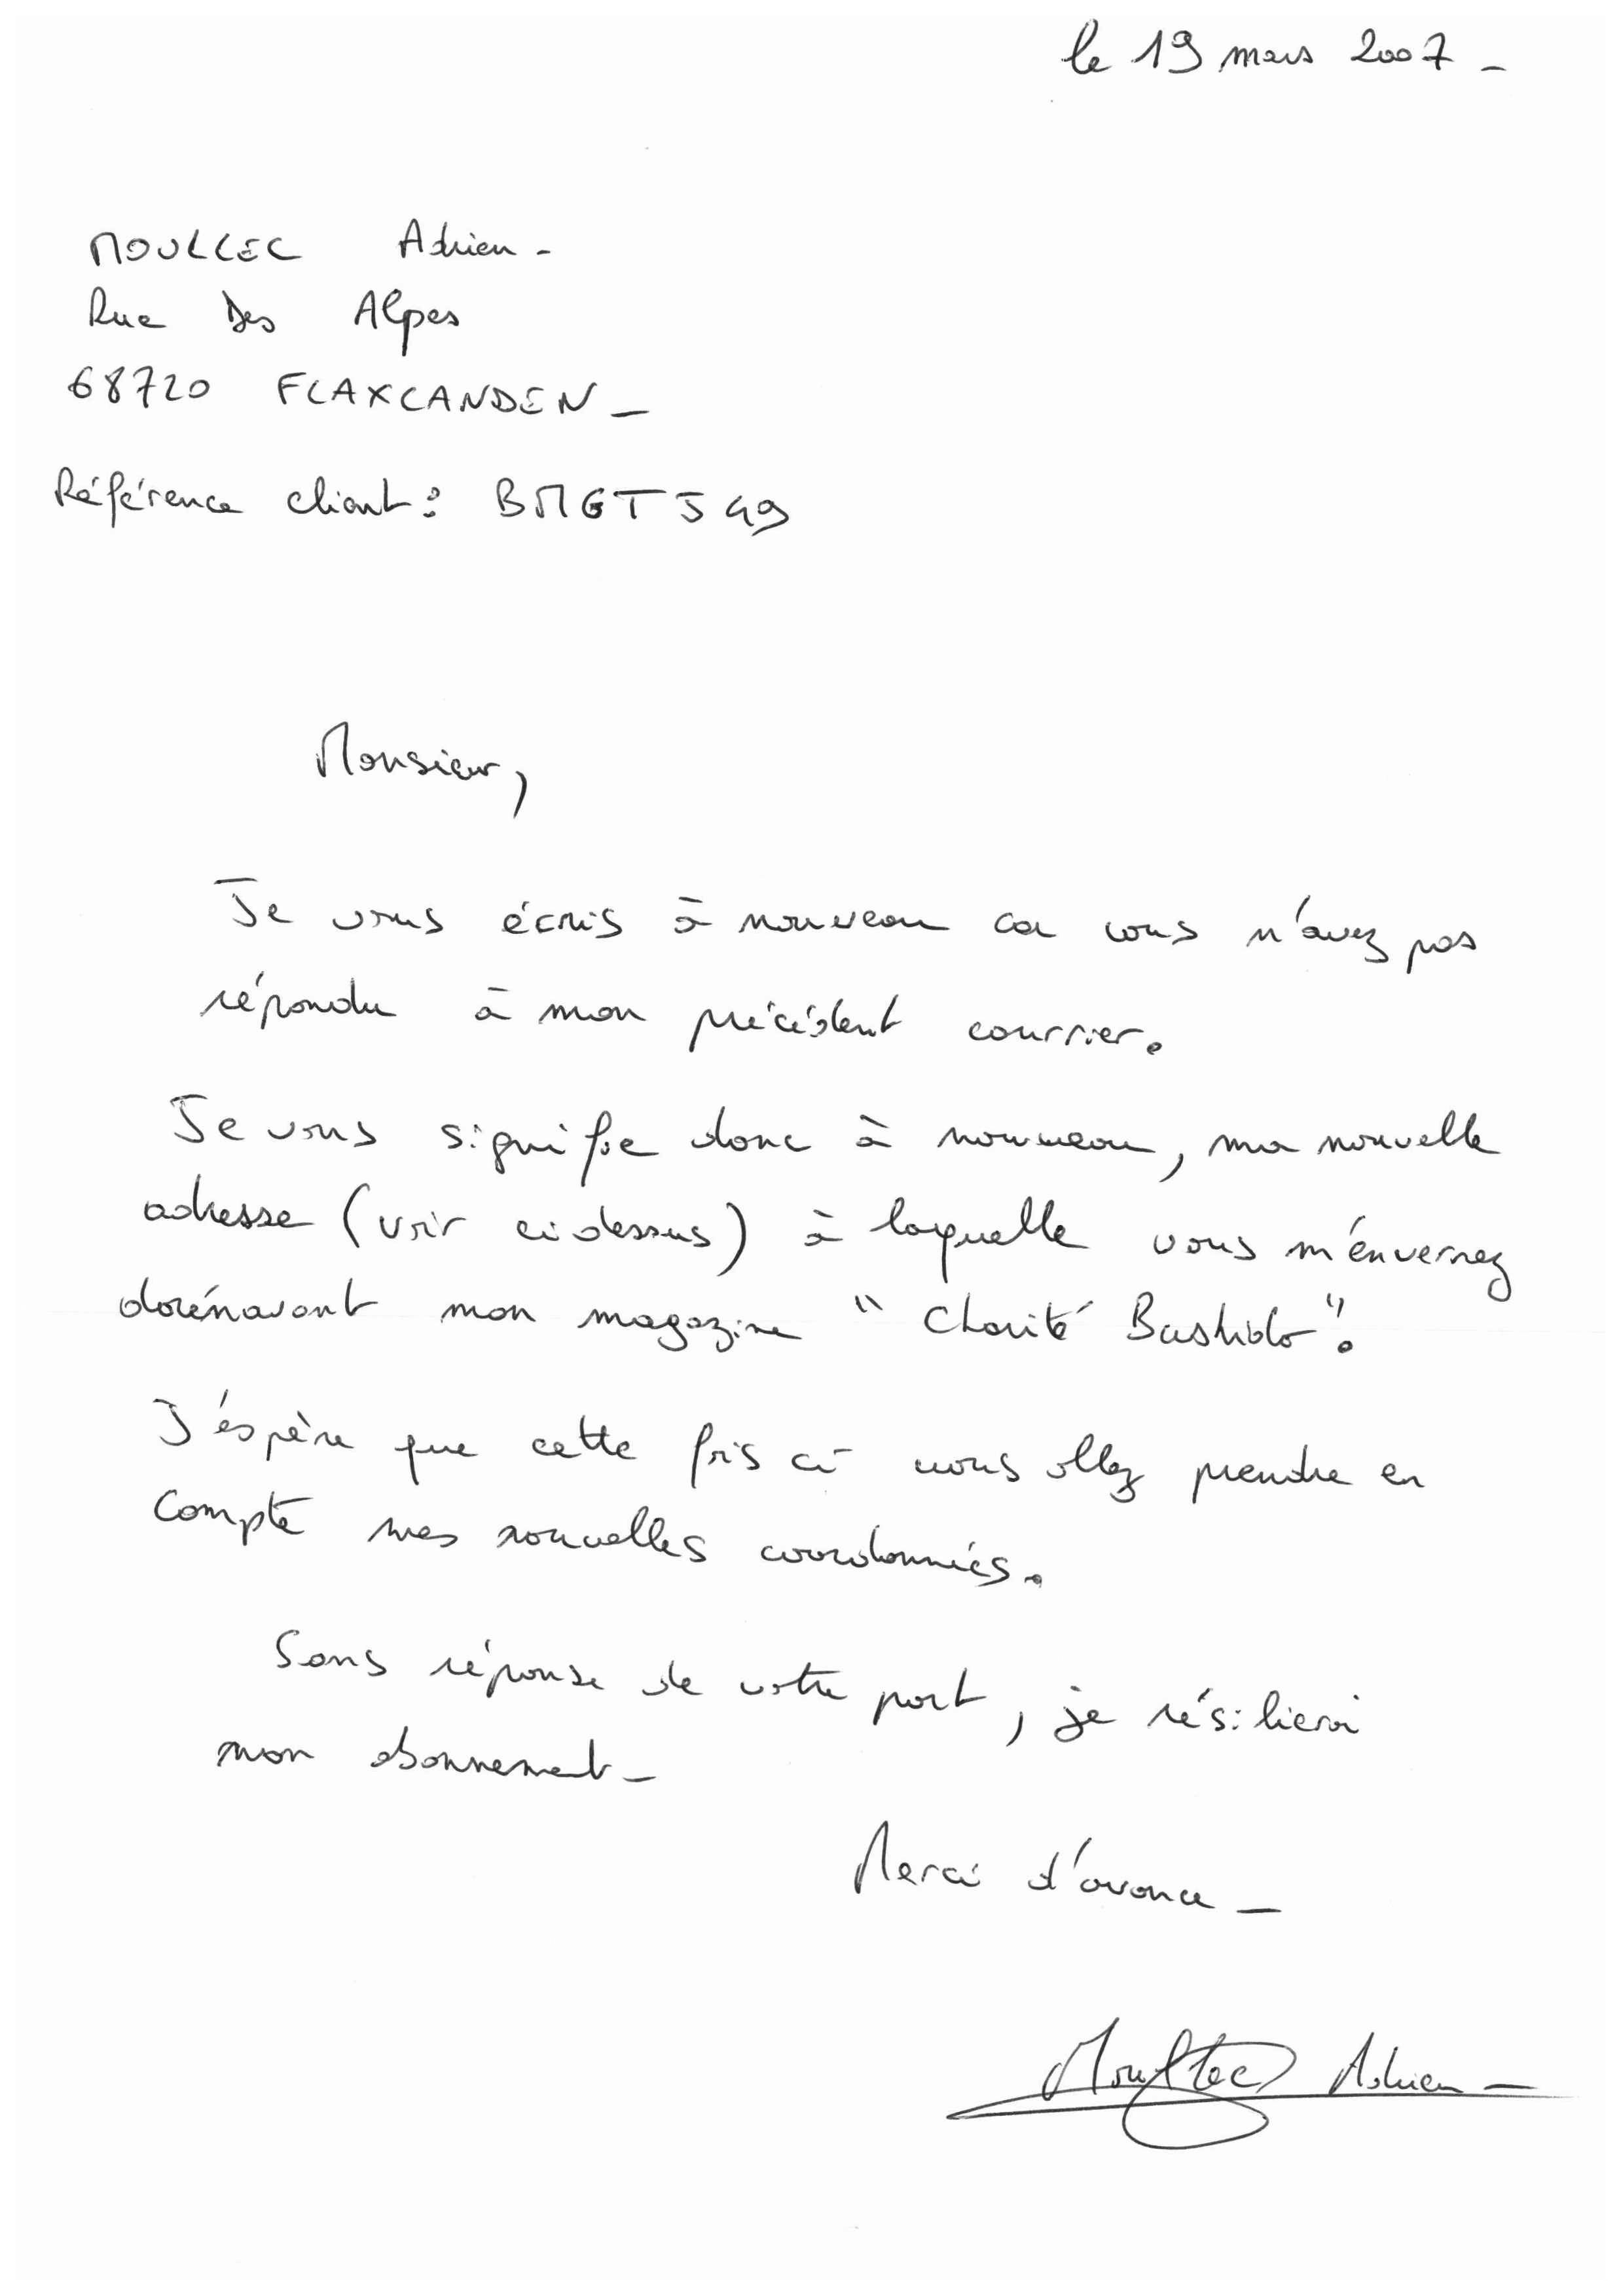 le 19 mars 2007 -
MOULLEC Adrien -
Rue Des Alpes
68720 FLAXLANDEN -
Référence client : BMGTJ49
Monsieur,
Je vous écris à nouveau car vous n'avez pas
répondu à mon précédent courrier.
Je vous signifie donc à nouveau, ma nouvelle
adresse (voir ci dessus) à laquelle vous m'énverrez
dorénavant mon magazine "Charité Bashido".
J'éspère que cette fois ci vous allez prendre en
compte mes nouvelles coordonnées.
Sans réponse de votre part, je résilierai
mon abonnement -
Merci d'avance -
Moullec Adrien -